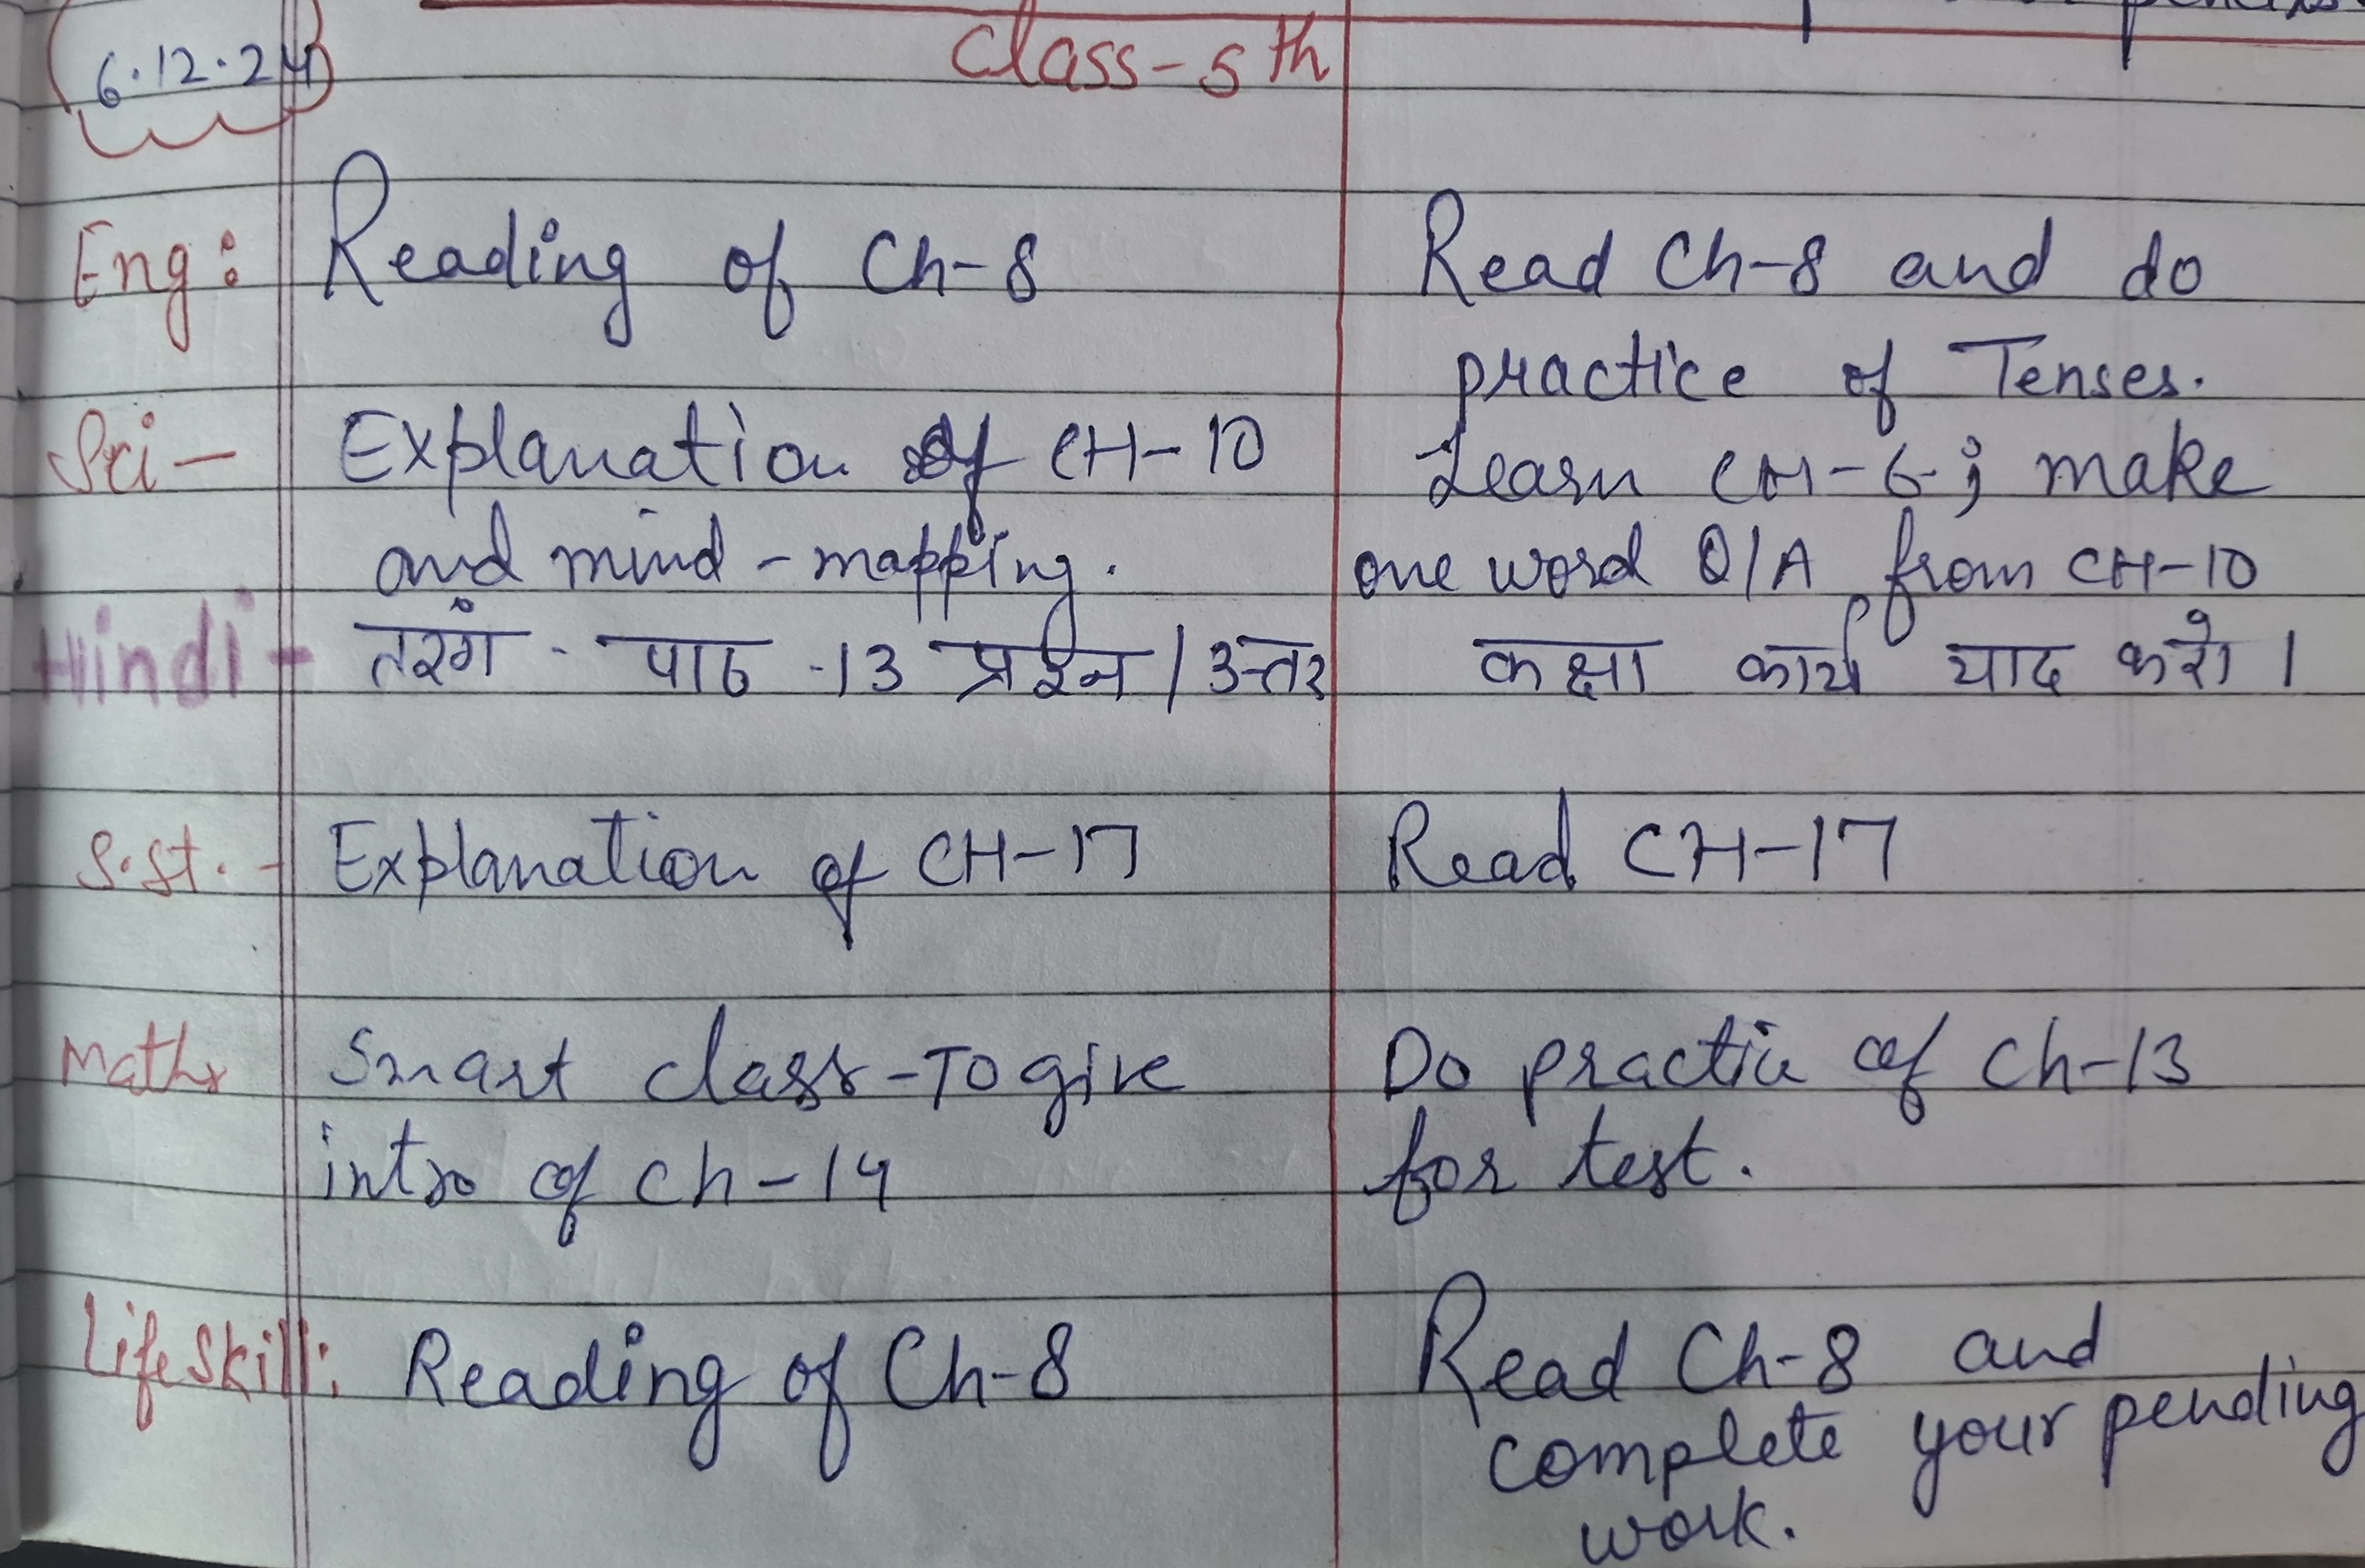 6.12.24
Class-5th
Eng: Reading of Ch-8
Read Ch-8 and do
practice of Tenses.
Sci- Explanation of CH-10
and mind-mapping.
Learn CH-6; make
one word Q/A from CH-10
Hindi- तरंग - पाठ -13 प्रश्न / उत्तर
कक्षा कार्य याद करो ।
S.St. - Explanation of CH-17
Read CH-17
Maths Smart class-To give
intro of ch-14
Do practice of ch-13
for test.
Life Skill: Reading of Ch-8
Read Ch-8 and
complete your pending
work.